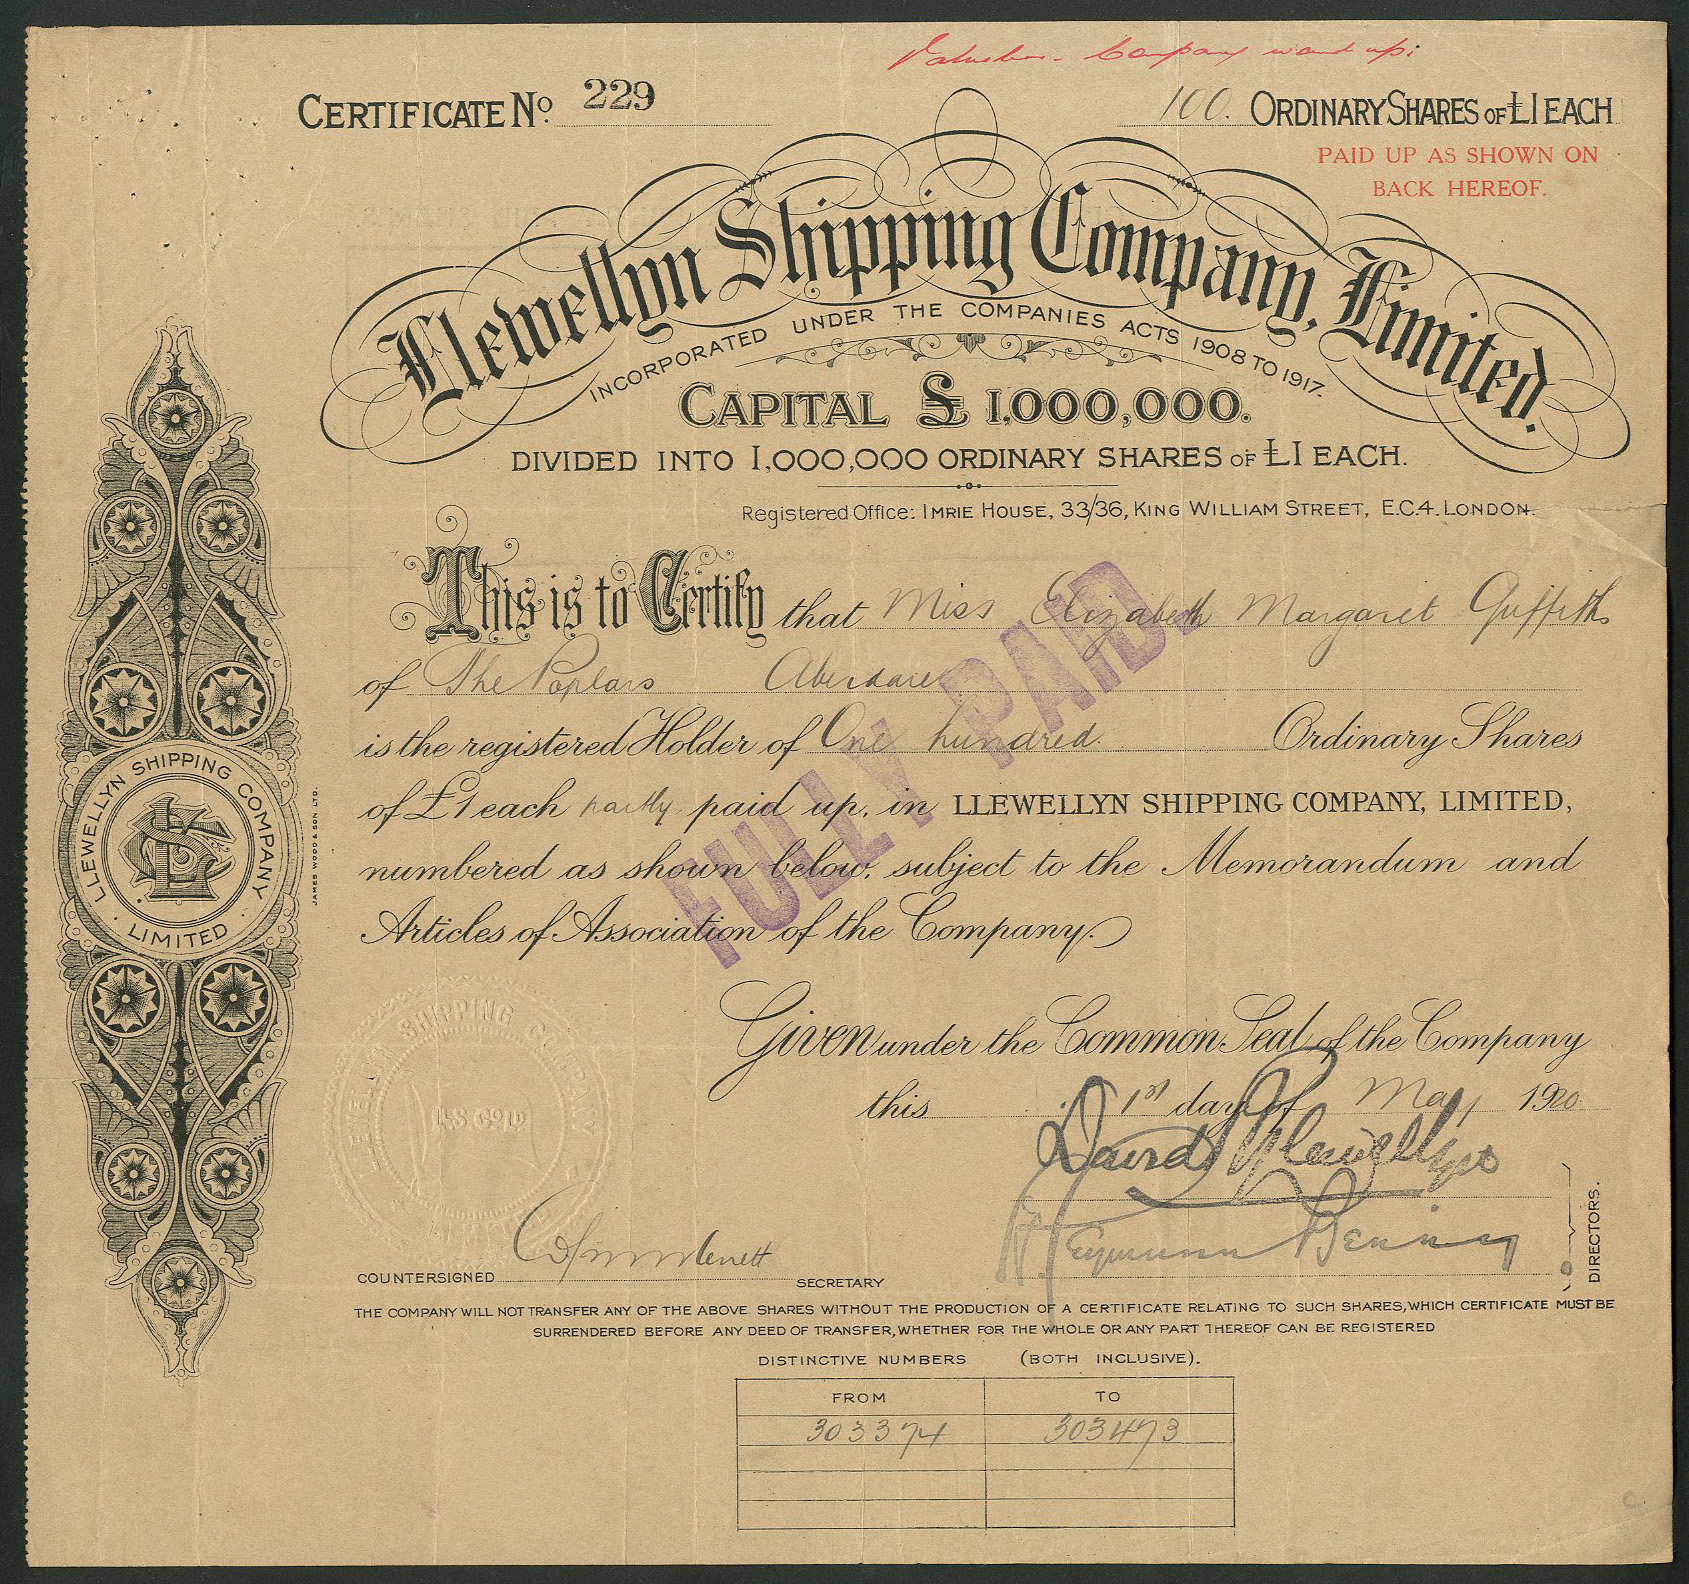 Valueless. Company wound up.
CERTIFICATE No. 229
100. ORDINARY SHARES OF £1 EACH
PAID UP AS SHOWN ON
BACK HEREOF.
Llewellyn Shipping Company, Limited.
INCORPORATED UNDER THE COMPANIES ACTS 1908 TO 1917.
CAPITAL £ 1,000,000.
DIVIDED INTO 1,000,000 ORDINARY SHARES OF £1 EACH.
Registered Office: IMRIE HOUSE, 33/36, KING WILLIAM STREET, E.C.4. LONDON.
This is to Certify that Miss Elizabeth Margaret Griffiths
of The Poplars Aberdare
is the registered Holder of One hundred. Ordinary Shares
of £1 each partly paid up, in LLEWELLYN SHIPPING COMPANY, LIMITED,
numbered as shown below, subject to the Memorandum and
Articles of Association of the Company.
FULLY PAID
LLEWELLYN SHIPPING COMPANY
LIMITED
JAMES WOOD & SON LTD.
Given under the Common Seal of the Company
this 1st day of May 1920
LLEWELLYN SHIPPING COMPANY
LIMITED
L.S. Co LD
David R Llewellyn
H. Seymour Berry
DIRECTORS.
COUNTERSIGNED SECRETARY
THE COMPANY WILL NOT TRANSFER ANY OF THE ABOVE SHARES WITHOUT THE PRODUCTION OF A CERTIFICATE RELATING TO SUCH SHARES, WHICH CERTIFICATE MUST BE
SURRENDERED BEFORE ANY DEED OF TRANSFER, WHETHER FOR THE WHOLE OR ANY PART THEREOF CAN BE REGISTERED
DISTINCTIVE NUMBERS (BOTH INCLUSIVE).
FROM TO
303374 303473